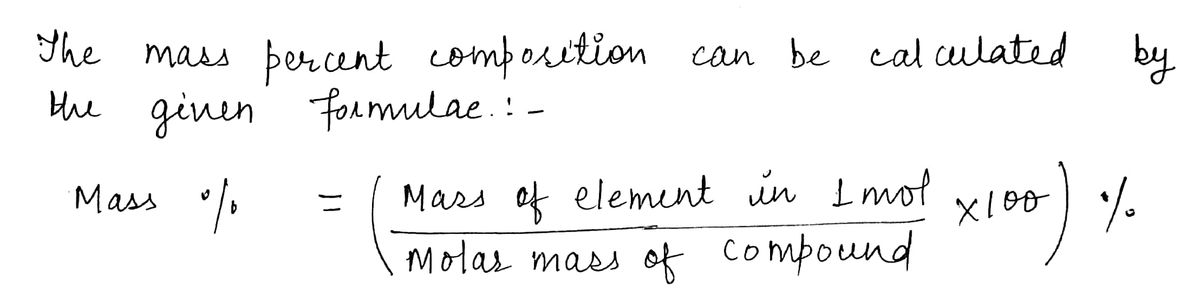 The mass percent composition can be calculated by
the given formulae.:-
Mass % = ( Mass of element in 1 mol / Molar mass of compound ×100 ) %